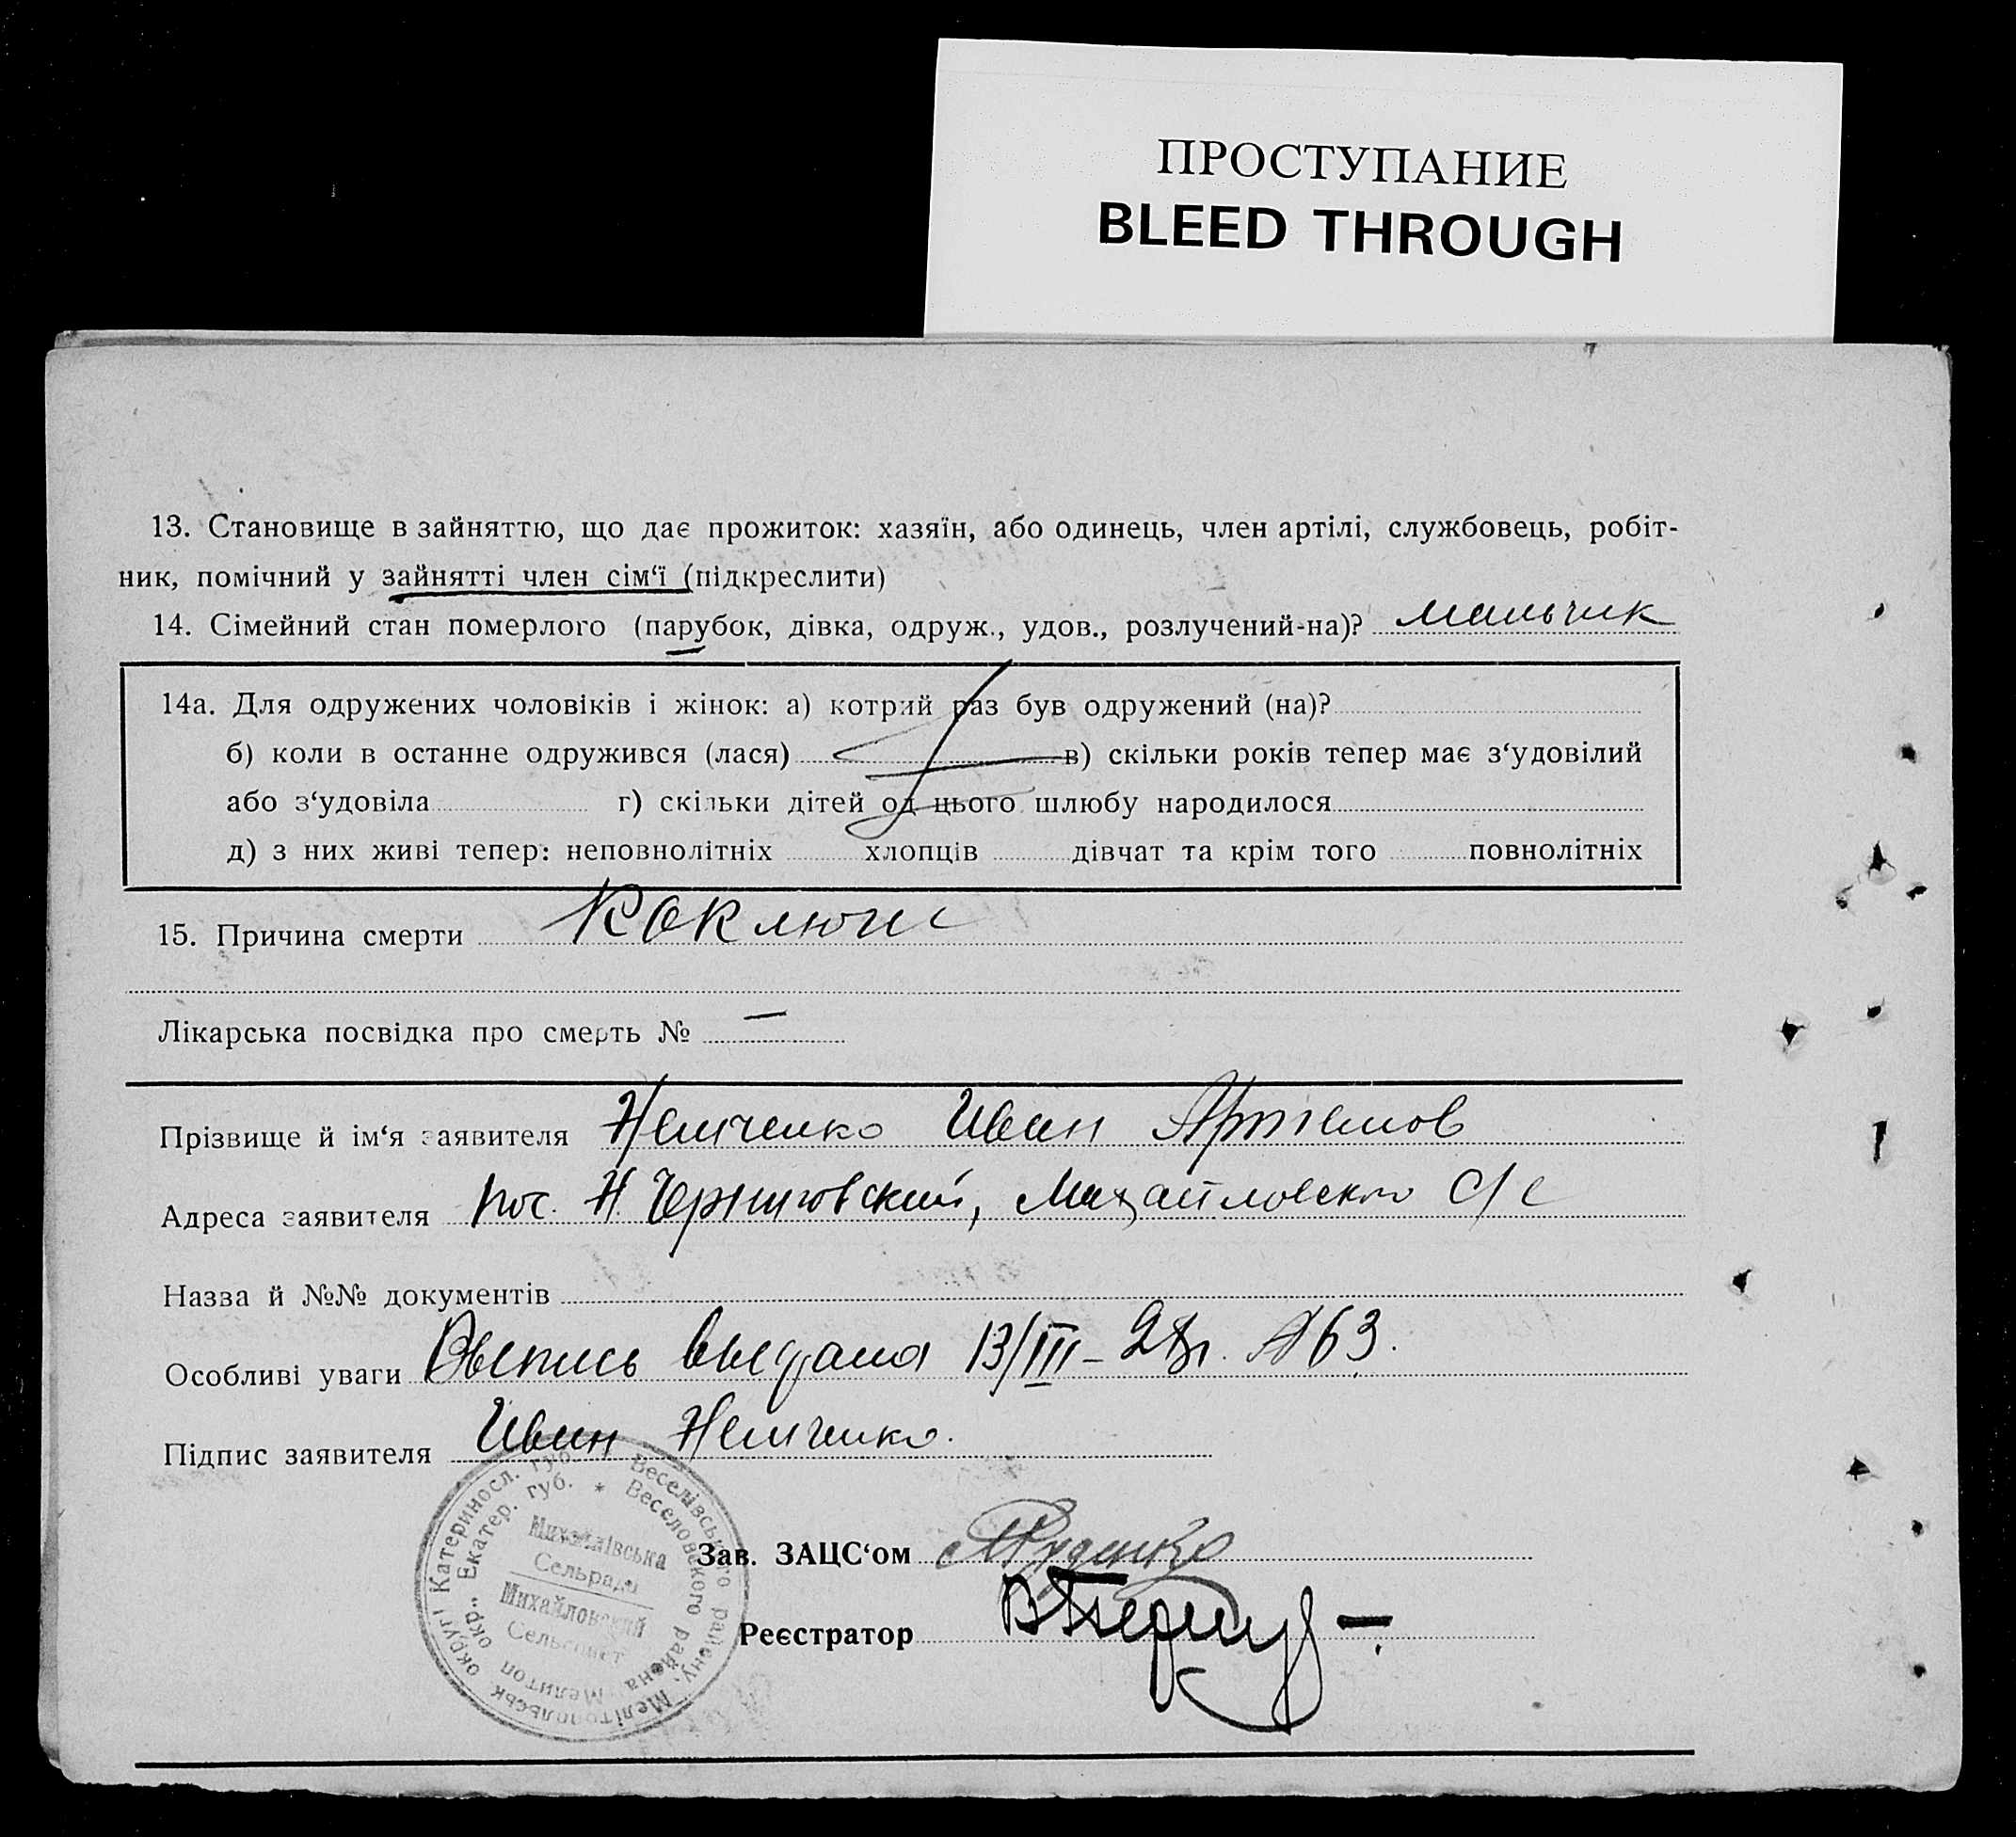 ПРОСТУПАНИЕ
BLEED THROUGH
13. Становище в зайняттю, що дає прожиток: хазяїн, або одинець, член артілі, службовець, робіт-
ник, помічний у зайнятті член сім‘ї (підкреслити)
14. Сімейний стан померлого (парубок, дівка, одруж., удов., розлучений-на)? мальчик
14а. Для одружених чоловіків і жінок: а) котрий раз був одружений (на)?
б) коли в останне одружився (лася) в) скільки років тепер має з‘удовілий
або з‘удовіла г) скільки дітей од цього шлюбу народилося
д) з них живі тепер: неповнолітніх хлопців дівчат та крім того повнолітніх
15. Причина смерти Коклюш
Лікарська посвідка про смерть № —
Прізвище й ім‘я заявителя Немченко Иван Артемов
Адреса заявителя пос. Н. Черниговский, Михайловского С/с
Назва й №№ документів
Особливі уваги Выпись выдана 13/III – 28г. №63.
Підпис заявителя Иван Немченко.
Зав. ЗАЦС‘ом Руденко
Реєстратор
Катериносл. губ. * Веселівського району, Мелітопольськ округі
Екатер. губ. * Веселовского района Мелитоп окр.
Михайлівська
Сельрада
Михайловский
Сельсовет